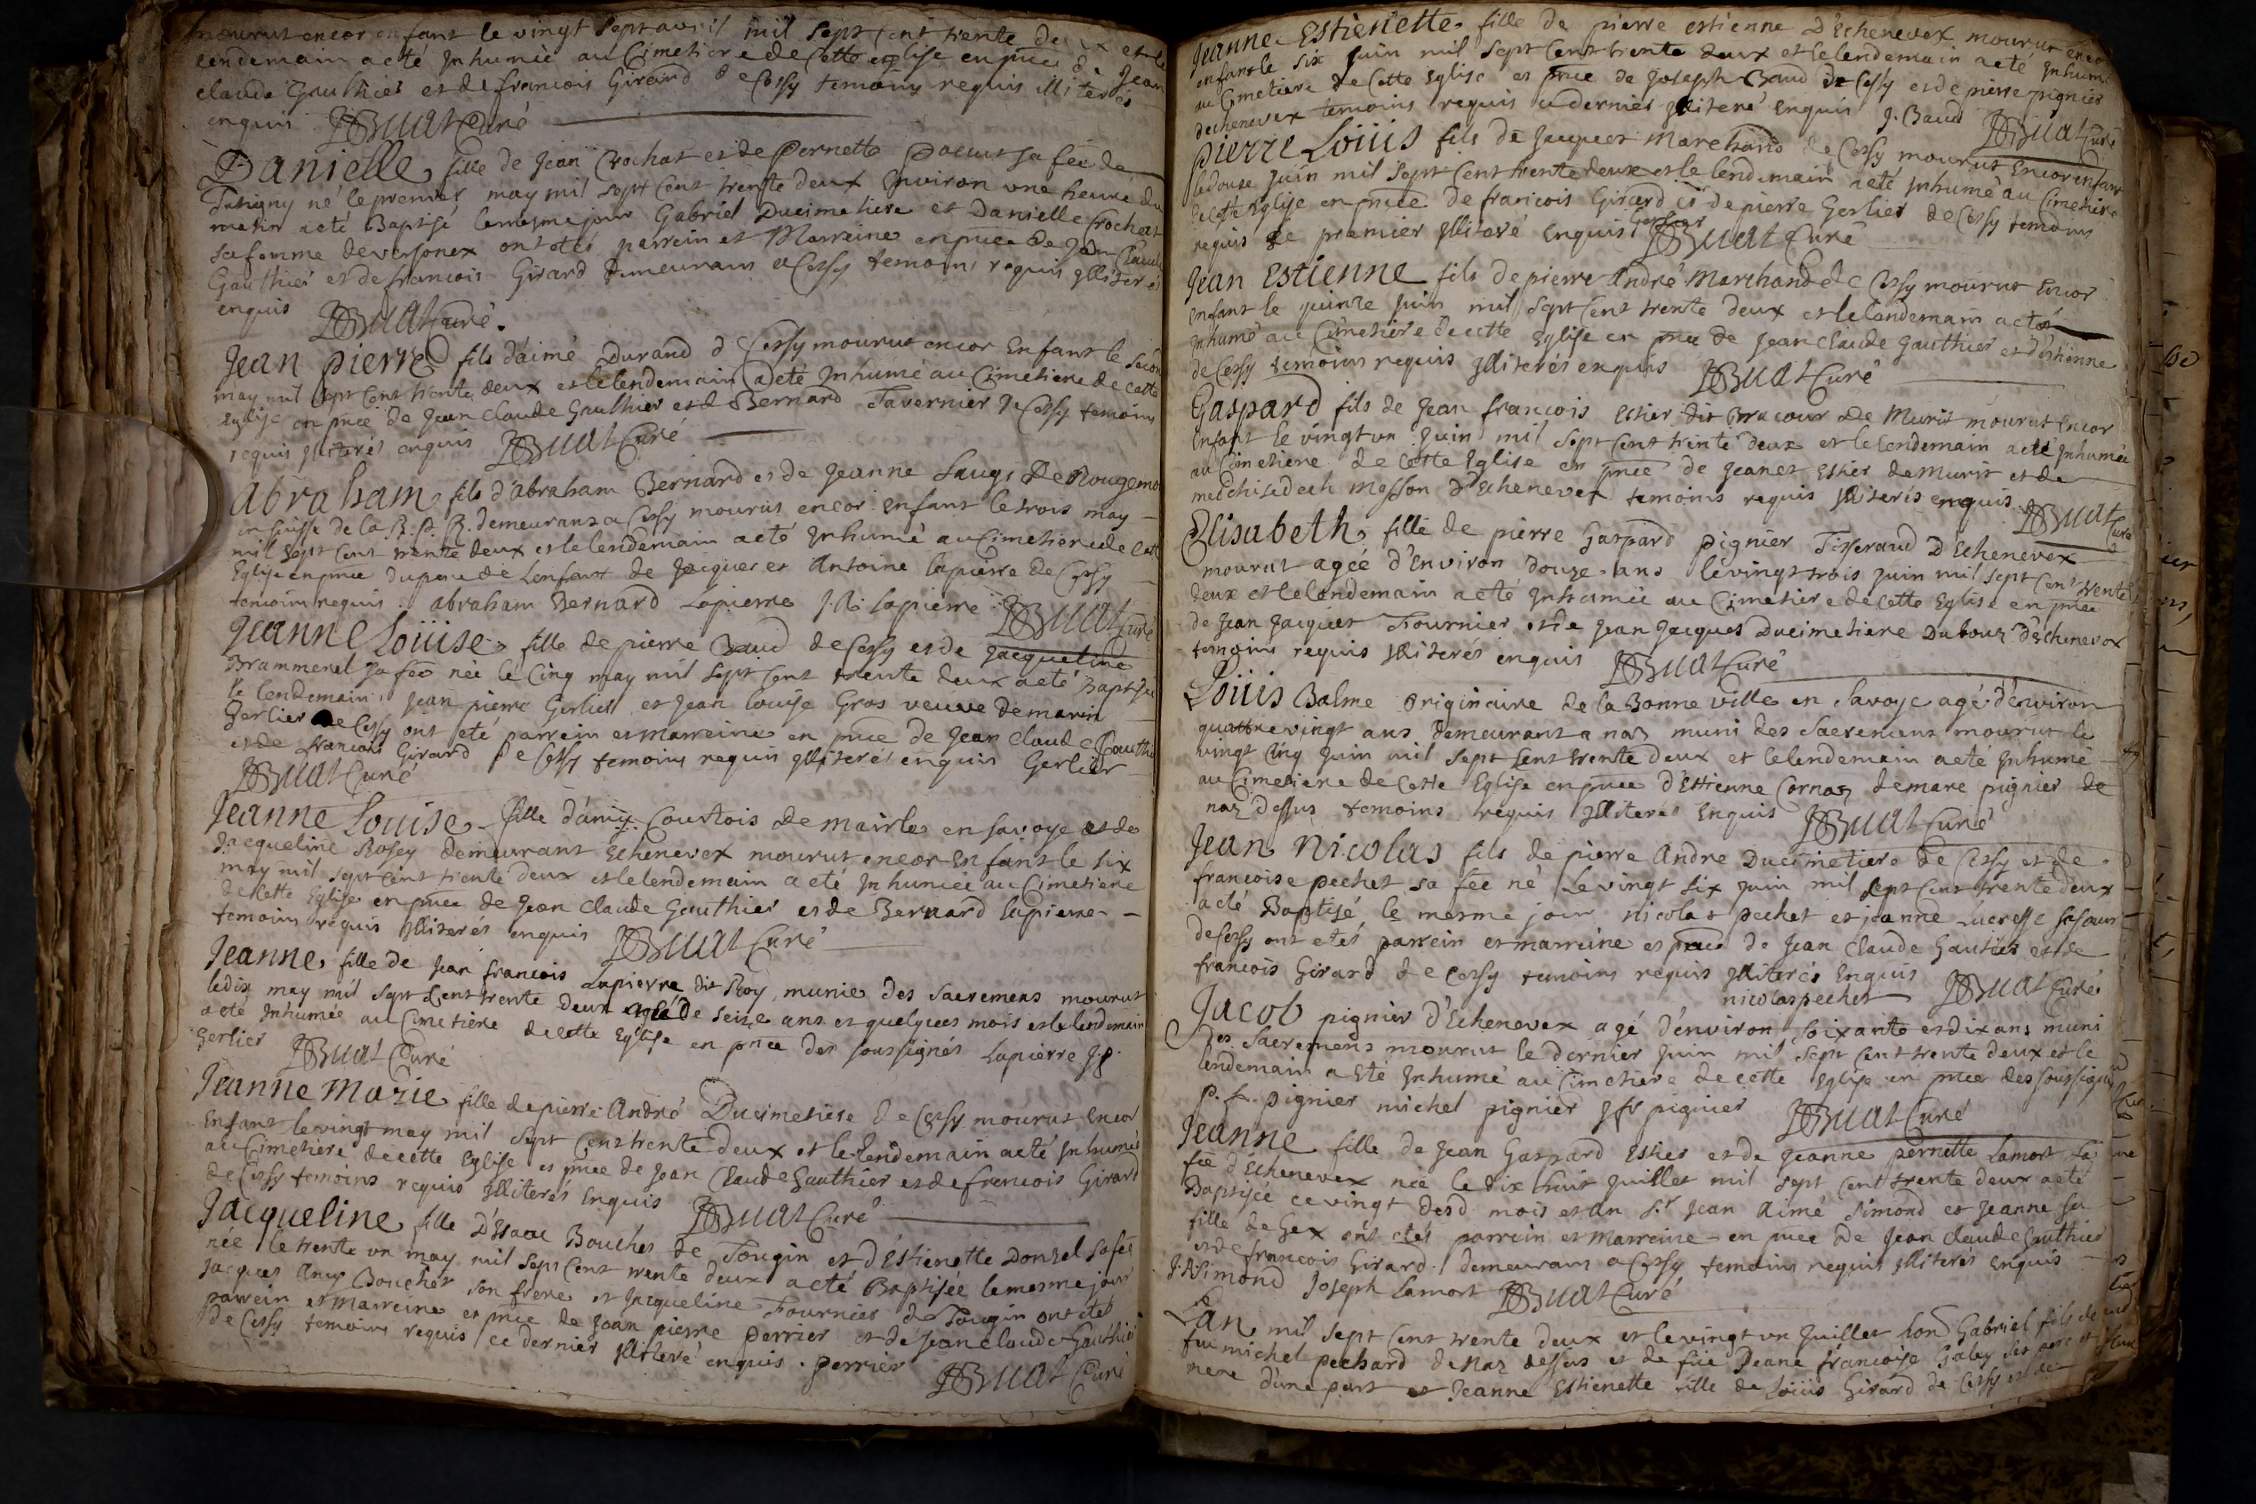 mourut encor enfant le vingt sept avril mil sept cent trente deux et le
lendemain a eté Inhumé au Cimetiere de Cette eglise en pnce de Jean
claude Gauthier et de francois Girard de Cessy temoins requis illiterés
enquis JBBuat Curé
Danielle fille de Jean Crochat et de Pernette Pacut sa fée de
né le premier may mil sept Cent trente deux Environ une heure du
matin a eté Baptisé le mesme jour Gabriel Ducimetiere et Danielle Crochat
sa femme de versonex ont etés parrein et Marreine en pnce de Jean Claude
Gauthier et de francois Girard demeurans a Cessy temoins requis Illiterés
enquis JBBuat Curé.
Jean pierre fils d'aimé Durand de Cessy mourut encor Enfant le
may mil sept Cent trente deux et le lendemain a eté Inhumé au Cimetiere de Cette
Eglise en pnce de Jean Claude Gauthier et de Bernard Tavernier de Cessy temoins
requis Illiterés enquis JBBuat Curé
Abraham fils d'abraham Bernard et de Jeanne Saugi de Rougemo
en suisse de la R. P. R. demeurans a Cessy mourut encor enfant le trois may
mil sept Cent trente deux et le lendemain a eté Inhumé au Cimetiere de Cett
Eglise en pnce du pere de Lenfant de Jacques et Antoine lapierre de Cessy
temoins requis. abraham Bernard Lapierre lapierre JBBuat Curé
Jeanne Loüise fille de pierre Baud de Cessy et de Jacqueline
Brammerel sa fée née le Cinq may mil sept Cent trente deux a eté Baptisée
le lendemain Jean pierre Gerlier et Jean louise Gros veuve de marin
Gerlier de Cessy ont eté parrein et Marreine en pnce de Jean Claude Gauthi
et de francois Girard de Cessy temoins requis Illiterés enquis Gerlier
JBBuat Curé
Jeanne Louise fille d'amy Courtois de mairle en savoye et de
Jacqueline Rosey demeurant Echenevex mourut encor Enfant le six
may mil sept Cent trente deux et le lendemain a eté Inhumée au Cimetiere
de Cette Eglise en pnce de Jean Claude Gauthier et de Bernard lapierre
temoins requis Illiterés enquis JBBuat Curé
Jeanne fille de Jean francois Lapierre dit Roy, munie des Sacremens mourut
le dix may mil sept Cent trente deux agée de seize ans et quelques mois et le lendemain
a eté Inhumée au Cimetiere de cette Eglise en pnce des soussignés Lapierre J.P.
Gerlier JBBuat Curé
Jeanne Marie fille de pierre André Ducimetiere de Cessy mourut Encor
Enfant le vingt may mil sept Cent trente deux et le lendemain a eté Inhumée
au Cimetiere de cette Eglise en pnce de Jean Claude Gauthier et de francois Girard
de Cessy temoins requis Illiterés Enquis JBBuat Curé
Jacqueline fille D'Isaac Boucher de Tougin et d'Estienette Donzel sa fée
née le trente un may mil sept Cent trente deux a eté Baptisée le mesme jour
Jacques Amy Boucher son frere et Jacqueline Fournier de Tougin ont etés
parrein et Marreine en pnce de Jean pierre Perrier et de Jean claude Gauthier
de Cessy temoins requis ce dernier Illiteré enquis. Perrier
JBBuat Curé
Jeanne Estienette fille de pierre estienne D'Echenevex mourut enco
enfant le six Juin mil sept Cent trente deux et le lendemain a eté Inhum
au Cimetiere de Cette Eglise en pnce de Joseph Baud de Cessy et de pierre pignier
dechenevex temoins requis ce dernier Illiteré Enquis J. Baud JBBuat Curé
Pierre Loüis fils de Jacques Marchand de Cessy mourut Encor enfant
le douze Juin mil sept Cent trente deux et le lendemain a eté Inhumé au Cimetiere
de Cette Eglise en pnce de francois Girard et de pierre Gerlier de Cessy temoins
requis le premier Illiteré enquis Gerlier JBBuat Curé
Jean Estienne fils de pierre André Marchand de Cessy mourut Encor
enfant le quinze Juin mil sept Cent trente deux et le lendemain a eté
Inhumé au Cimetiere de cette Eglise en pnce de Jean Claude Gauthier et d'estienne
de Cessy temoins requis Illiterés enquis JBBuat Curé
Gaspard fils de Jean francois Estier dit Bracour de Murit mourut Encor
Enfant le vingt un Juin mil sept Cent trente deux et le lendemain a eté Inhumé
au Cimetiere de Cette Eglise en pnce de Jeanet Estier de Murit et de
melchisedech Mosson d'Echenevex temoins requis Illiterés enquis JBBuat Curé
Elisabeth fille de pierre Gaspard pignier Tisserand D'Echenevex
mourut agée d'Environ douze ans le vingt trois Juin mil sept Cent trente
deux et le lendemain a eté Inhumée au Cimetiere de cette Eglise en pnce
de Jean Jacques Fournier et de Jean Jacques Ducimetiere Dubouz d'Echenevex
temoins requis Illiterés enquis JBBuat Curé
Loüis Balme originaire de la Bonne ville en Savoye agé d'environ
quattre vingt ans demeurant a naz muni des Sacremens mourut le
vingt Cinq Juin mil sept Cent trente deux et le lendemain a eté Inhumé
au Cimetiere de Cette Eglise en pnce d'Estienne Cornaz demare pignier de
naz Dessus temoins requis Illiterés Enquis JBBuat Curé
Jean Nicolas fils de pierre Andre Ducimetiere de Cessy et de
francoise pechet sa fée né le vingt six Juin mil sept Cent trente deux
a eté Baptisé le mesme jour nicolas pechet et jeanne Lucresse sa sœur
de Cessy ont etés parrein et marreine en pnce de Jean Claude Gautier et de
francois Girard de Cessy temoins requis Illiterés Enquis
nicolas pechet JBBuat Curé
Jacob pignier d'Echenevex agé d'environ soixante et dix ans muni
des Sacremens mourut le dernier Juin mil sept Cent trente deux et le
lendemain a eté Inhumé au Cimetiere de cette Eglise en pnce des soussignés
P. f. pignier michel pignier J fr pignier JBBuat Curé
Jeanne fille de Jean Gaspard Estier et de Jeanne pernette Lamort sa
fée d'Echenevex née le dix huit Juillet mil sept Cent trente deux a eté
Baptisée ce vingt desd mois et an Sr Jean Aimé Simond et Jeanne sa
fille de Gex ont etés parrein et Marreine en pnce de Jean Claude Gauthier
et de francois Girard demeurans a Cessy temoins requis Illiterés enquis
J. A. Simond Joseph Lamort JBBuat Curé
Lan mil sept Cent trente deux et le vingt un Juillet hon Gabriel fils de
feu michel pechard de Naz dessus et de füe Deane francoise Gabey ses pere et
mere d'une part et Jeanne Estienette fille de Loüis Girard de Cessy et de